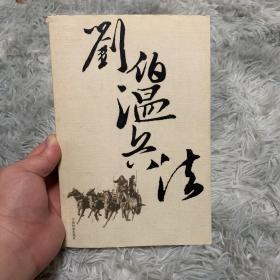 劉伯温兵法